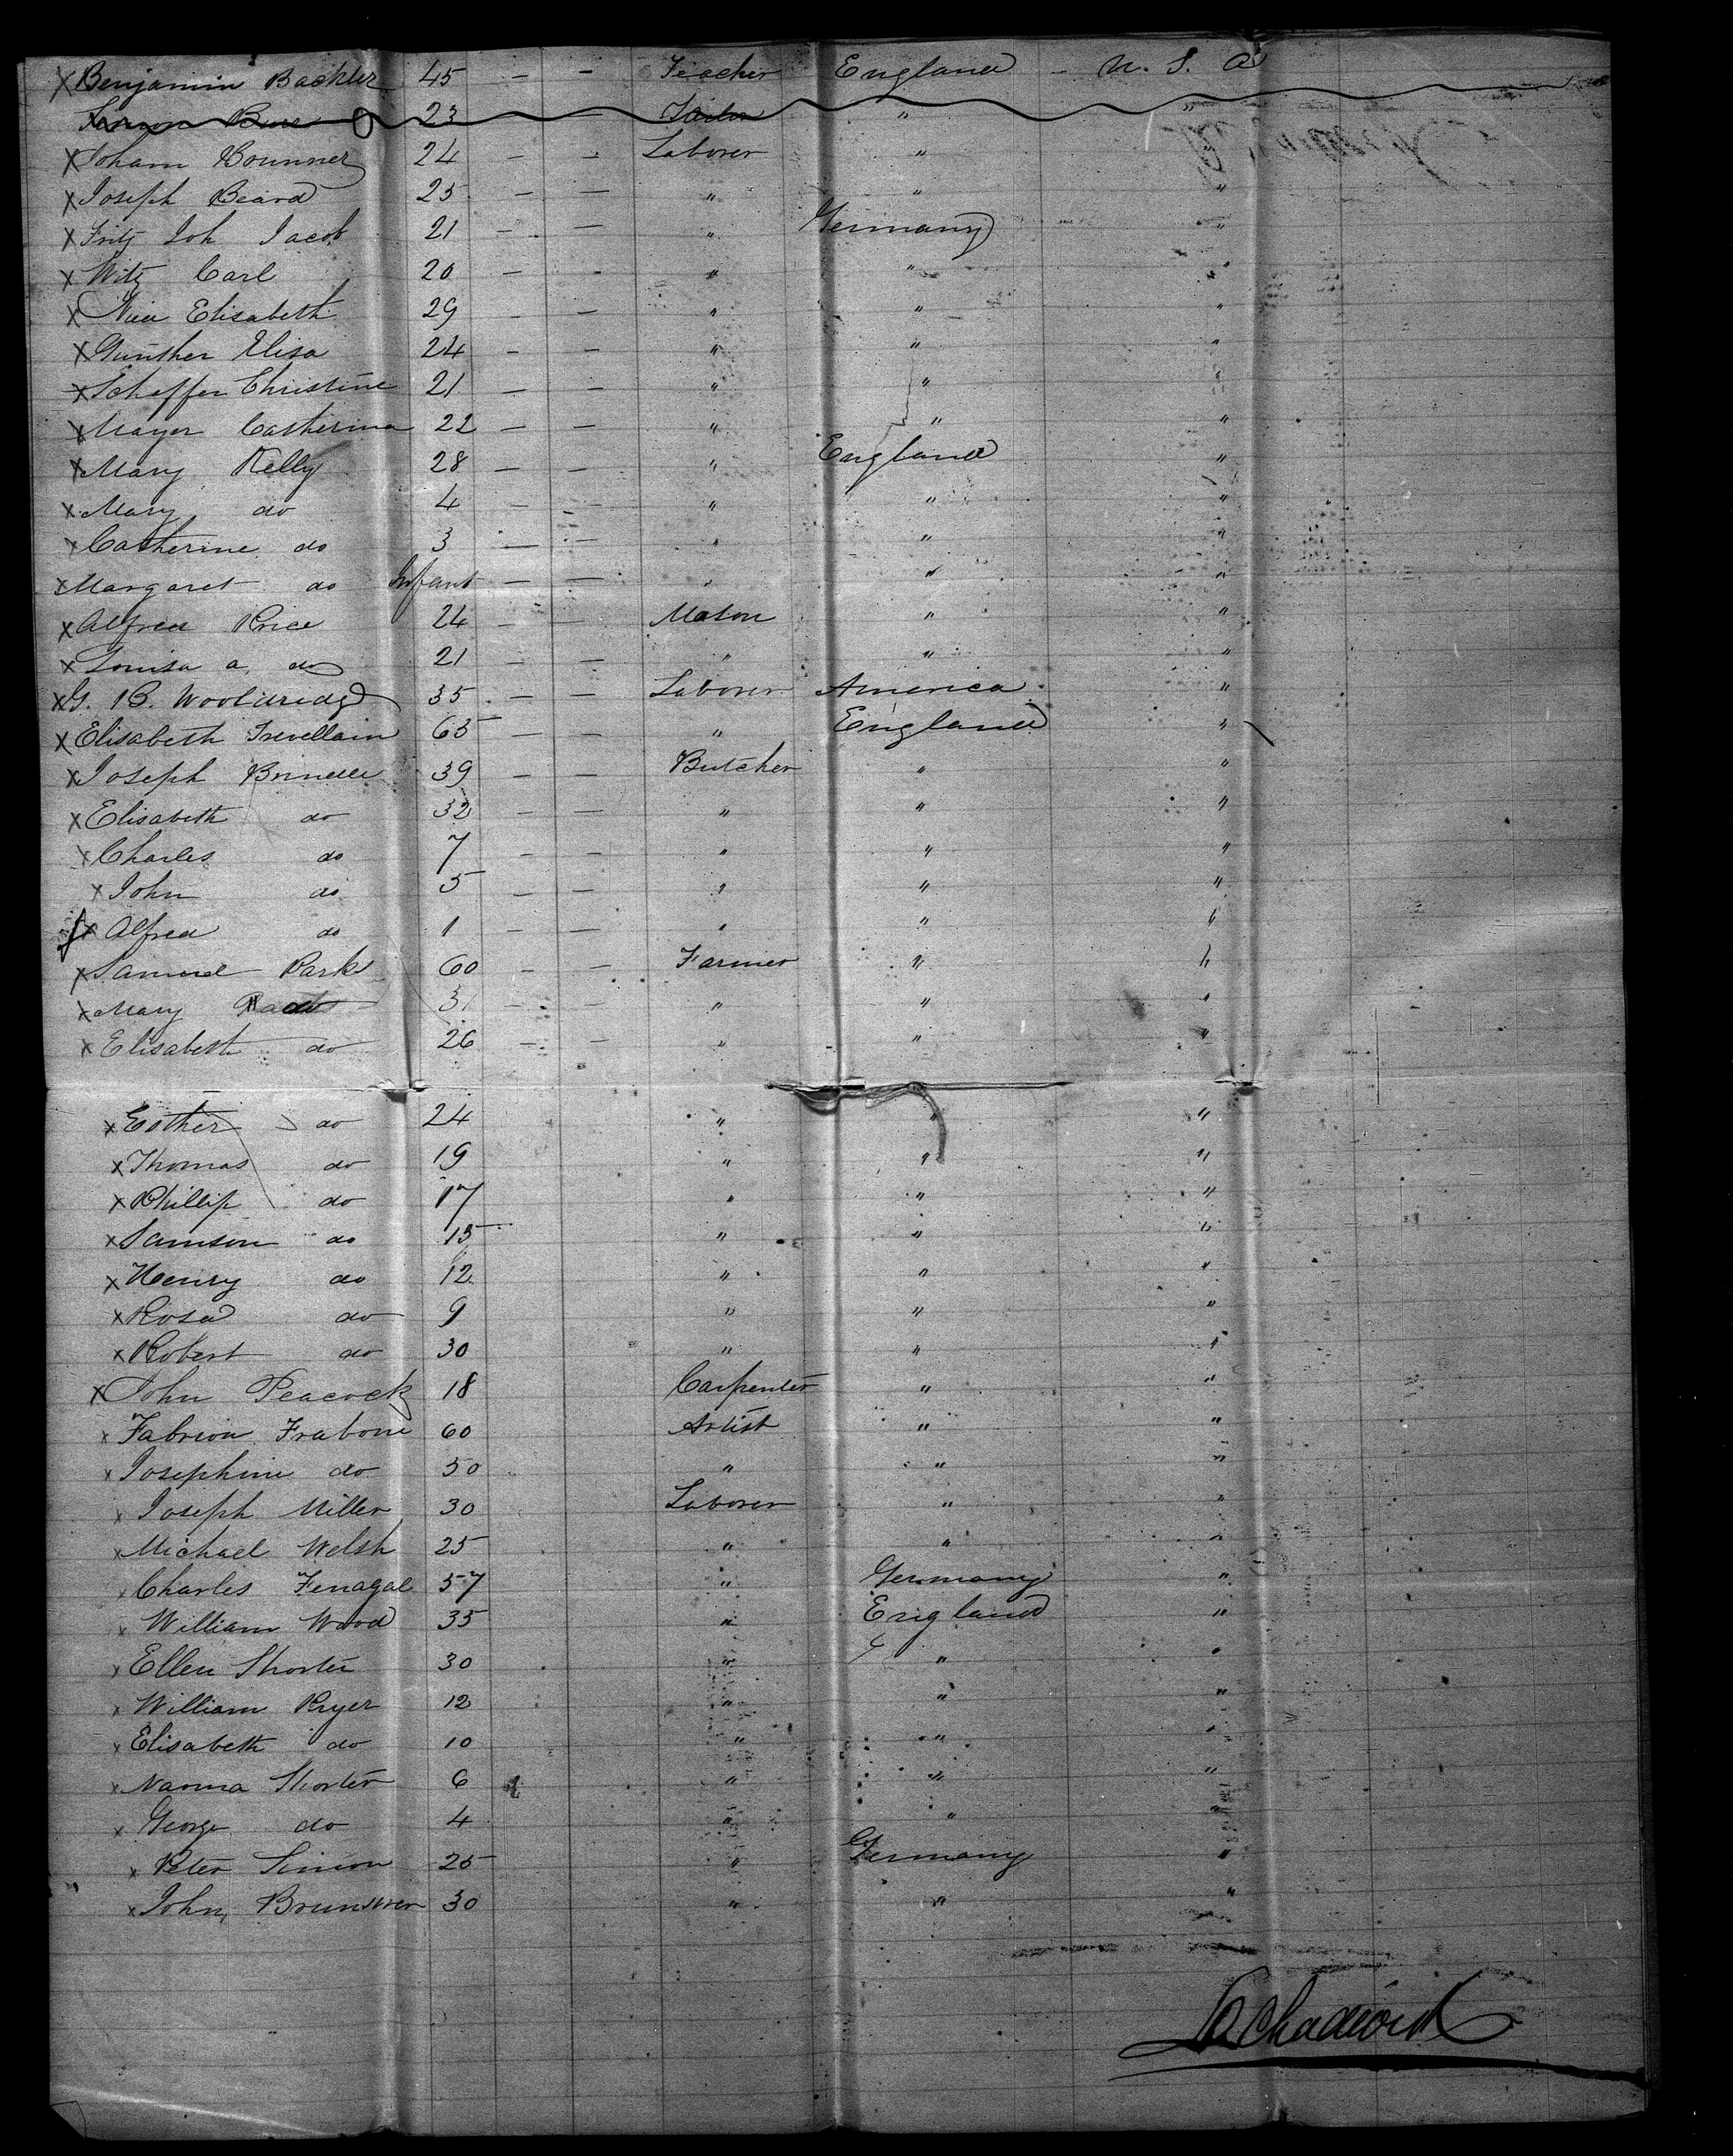 X Benjamin Backler 45 — — Teacher England - U. S. A
Simon 23 Tailor " "
X Joham Brunner 24 — — Laborer "
X Joseph Beard 25 — — " " "
X Fritz Joh Jacob 21 — — " Germany "
X Witz Carl 20 — - " " "
X Elisabeth 29 — — " " "
X Gunther Elisa 24 — — " " "
X Scheffer Christine 21 — — " " "
X Mayer Catherina 22 — — " " "
X Mary Kelly 28 — — " England "
X Mary do 4 — — " " "
X Catherine do 3 — — " " "
X Margaret do Infant — — " " "
X Alfred Price 24 — — Mason " "
X Louisa a. do 21 — — " " "
X G. B. Wooldridge 35 — — Laborer America "
X Elisabeth Trevellain 65 — — " England "
X Joseph 39 — — Butcher " "
X Elisabeth do 32 — — " " "
X Charles do 7 — — " " "
X John do 5 — — " " "
X Alfred do 1 — — " " "
X Samuel Parks 60 — — Farmer " "
X Mary do 31 — — " " "
X Elisabeth do 26 — — " " "
X Esther do 24 " " "
X Thomas do 19 " " "
X Phillip do 17 " " "
X Samson do 15 " " "
X Henry do 12 " " "
X Rosa do 9 " " "
X Robert do 30 " " "
X John Peacock 18 Carpenter " "
X Fabrion Frabone 60 Artist " "
X Josephine do 50 " " "
X Joseph Miller 30 Laborer " "
X Michael Welsh 25 " " "
X Charles Fenagal 57 " Germany "
X William Wood 35 " England "
X Ellen Shorter 30 " " "
X William Pryer 12 " " "
X Elisabeth do 10 " " "
X Naoma Shorter 6 " " "
X George do 4 " " "
X Peter Simon 25 " Germany "
X John Brunswer 30 " " "
Chadwick